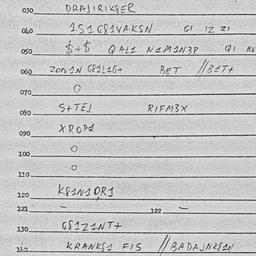 030 DRAJIRIKSER
040 1S1G81VAKSN QI IZ ZI
050 $+$ QAL1 N1M1N3P QI
060 ZON1N G81L1G+ BET //B1T+
070 O
080 S+TEJ RIFM3X
090 XROP1
100 O
110 O
120 K81N1DR1
121 – 122 –
130 G81Z1NT+
KRANK81 FIS //BADAJNK81N